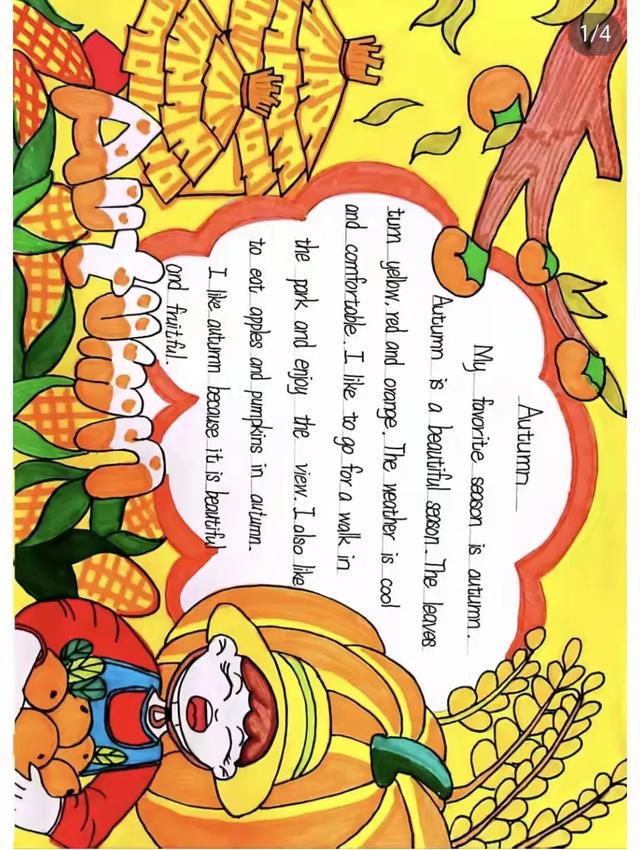 1/4
Autumn
My favorite season is autumn.
Autumn is a beautiful season. The leaves
turn yellow, red and orange. The weather is cool
and comfortable. I like to go for a walk in
the park and enjoy the view. I also like
to eat apples and pumpkins in autumn.
I like autumn because it is beautiful
and fruitful.
Autumn